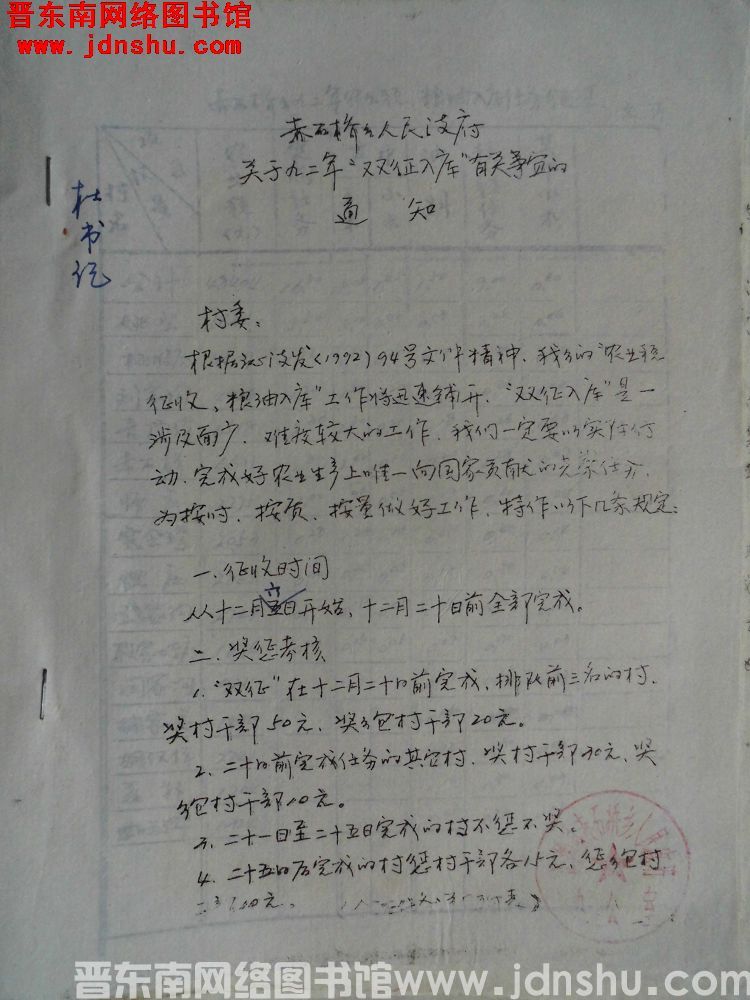 晋东南网络图书馆
www.jdnshu.com
赤石桥乡人民政府
关于九二年"双征入库"有关事宜的
通知
杜书记
村委：
根据沁政发(1992)94号文件精神，我乡的"农业税
征收、粮油入库"工作将迅速铺开，"双征入库"是一
涉及面广、难度较大的工作，我们一定要以实际行
动，完成好农业生产上唯一向国家贡献的光荣任务，
为按时、按质、按量做好工作，特作以下几条规定：
一、征收时间
从十二月六日开始，十二月二十日前全部完成。
二、奖惩考核
1."双征"在十二月二十日前完成，排队前三名的村，
奖村干部50元，奖包村干部20元。
2、二十日前完成任务的其它村，奖村干部30元，奖
包村干部10元。
3、二十一日至二十五日完成的村不惩不奖。
4、二十五日后完成的村惩村干部各15元，惩包村
10元。
晋东南网络图书馆www.jdnshu.com